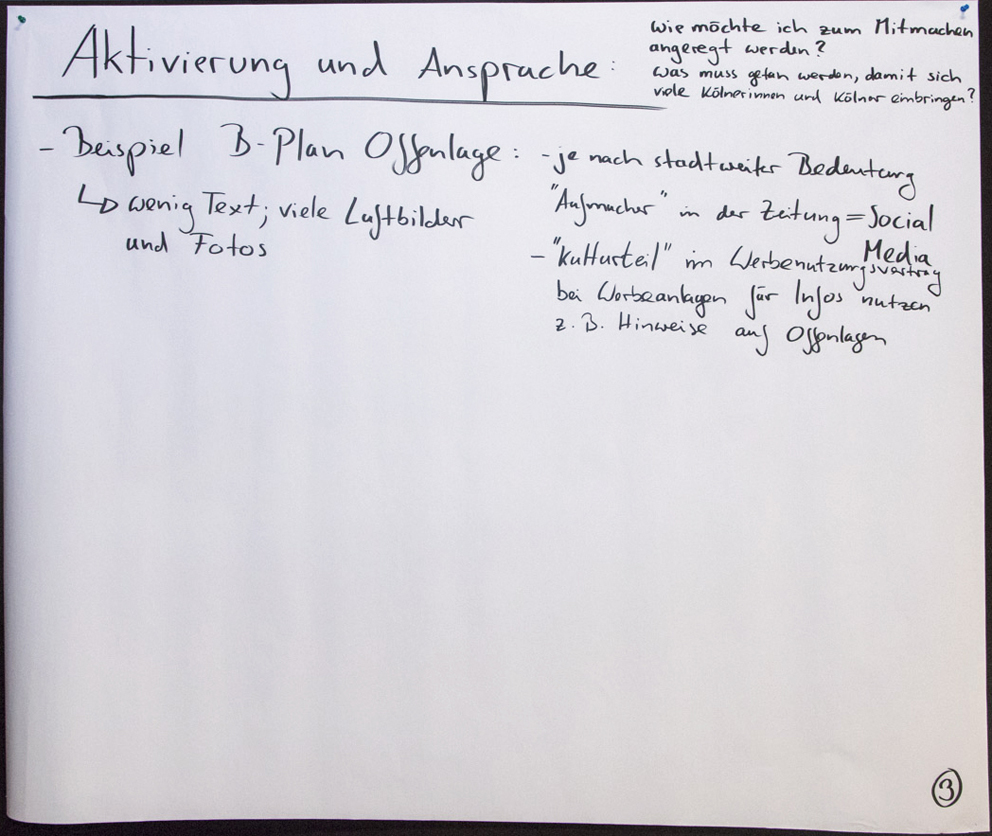 Aktivierung und Ansprache:
Wie möchte ich zum Mitmachen
angeregt werden?
Was muss getan werden, damit sich
viele Kölnerinnen und Kölner einbringen?
- Beispiel B-Plan Offenlage:
↳ wenig Text; viele Luftbilder
und Fotos
- je nach stadtweiter Bedeutung
"Aufmacher" in der Zeitung = Social
Media
- "Kulturteil" im Werbenutzungsvertrag
bei Werbeanlagen für Infos nutzen
z.B. Hinweise auf Offenlagen
3